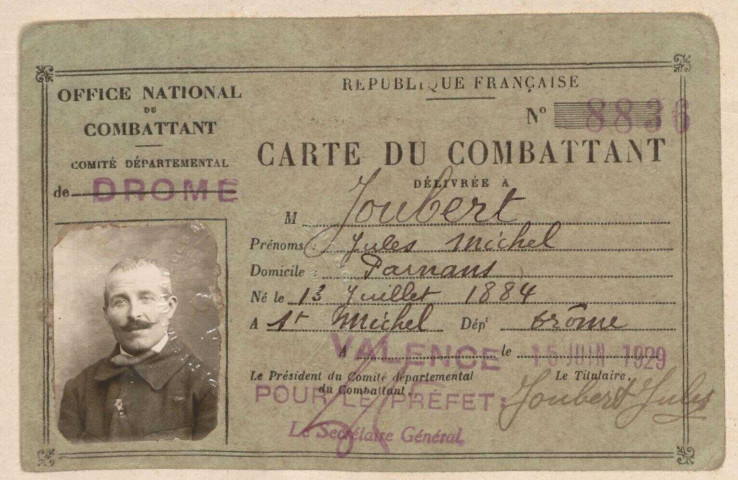 OFFICE NATIONAL
DU
COMBATTANT
COMITÉ DÉPARTEMENTAL
de DROME
REPUBLIQUE FRANÇAISE
N° 8836
CARTE DU COMBATTANT
DÉLIVRÉE A
M Joubert
Prénoms : Jules Michel
Domicile : Parnans
Né le 13 Juillet 1884
A St Michel Dépt Drôme
A VALENCE le 15 JUIN 1929
Le Président du Comité départemental
du Combattant :
Le Titulaire,
POUR LE PRÉFET :
Joubert Jules
Le Secrétaire Général